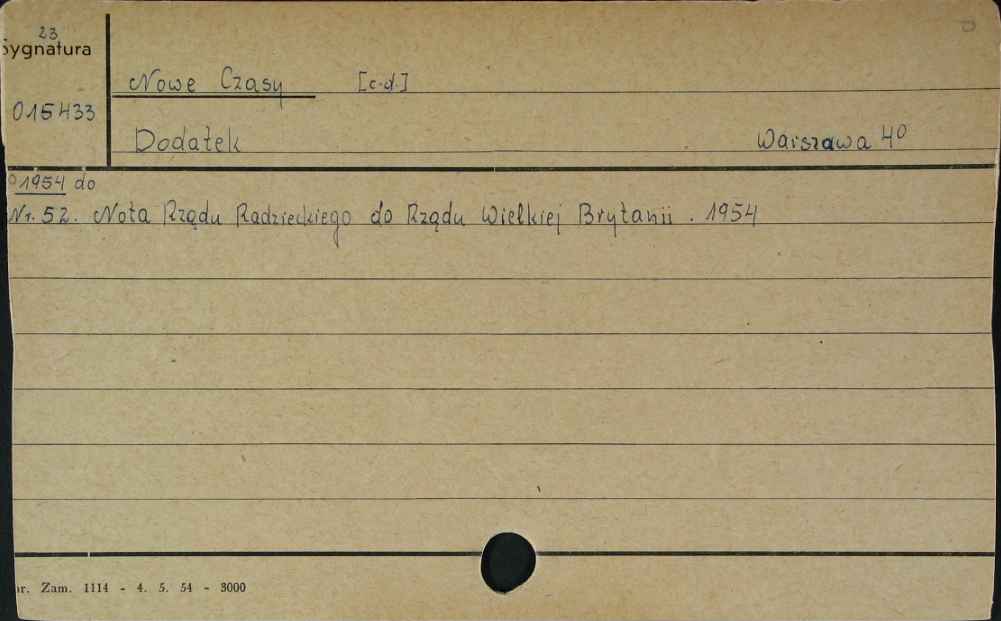 23
Sygnatura
Nowe Czasy [c.d.]
015433
Dodatek Warszawa 4°
1954 do
Nr. 52. Nota Rządu Radzieckiego do Rządu Wielkiej Brytanii. 1954
nr. Zam. 1114 - 4. 5. 54 - 3000